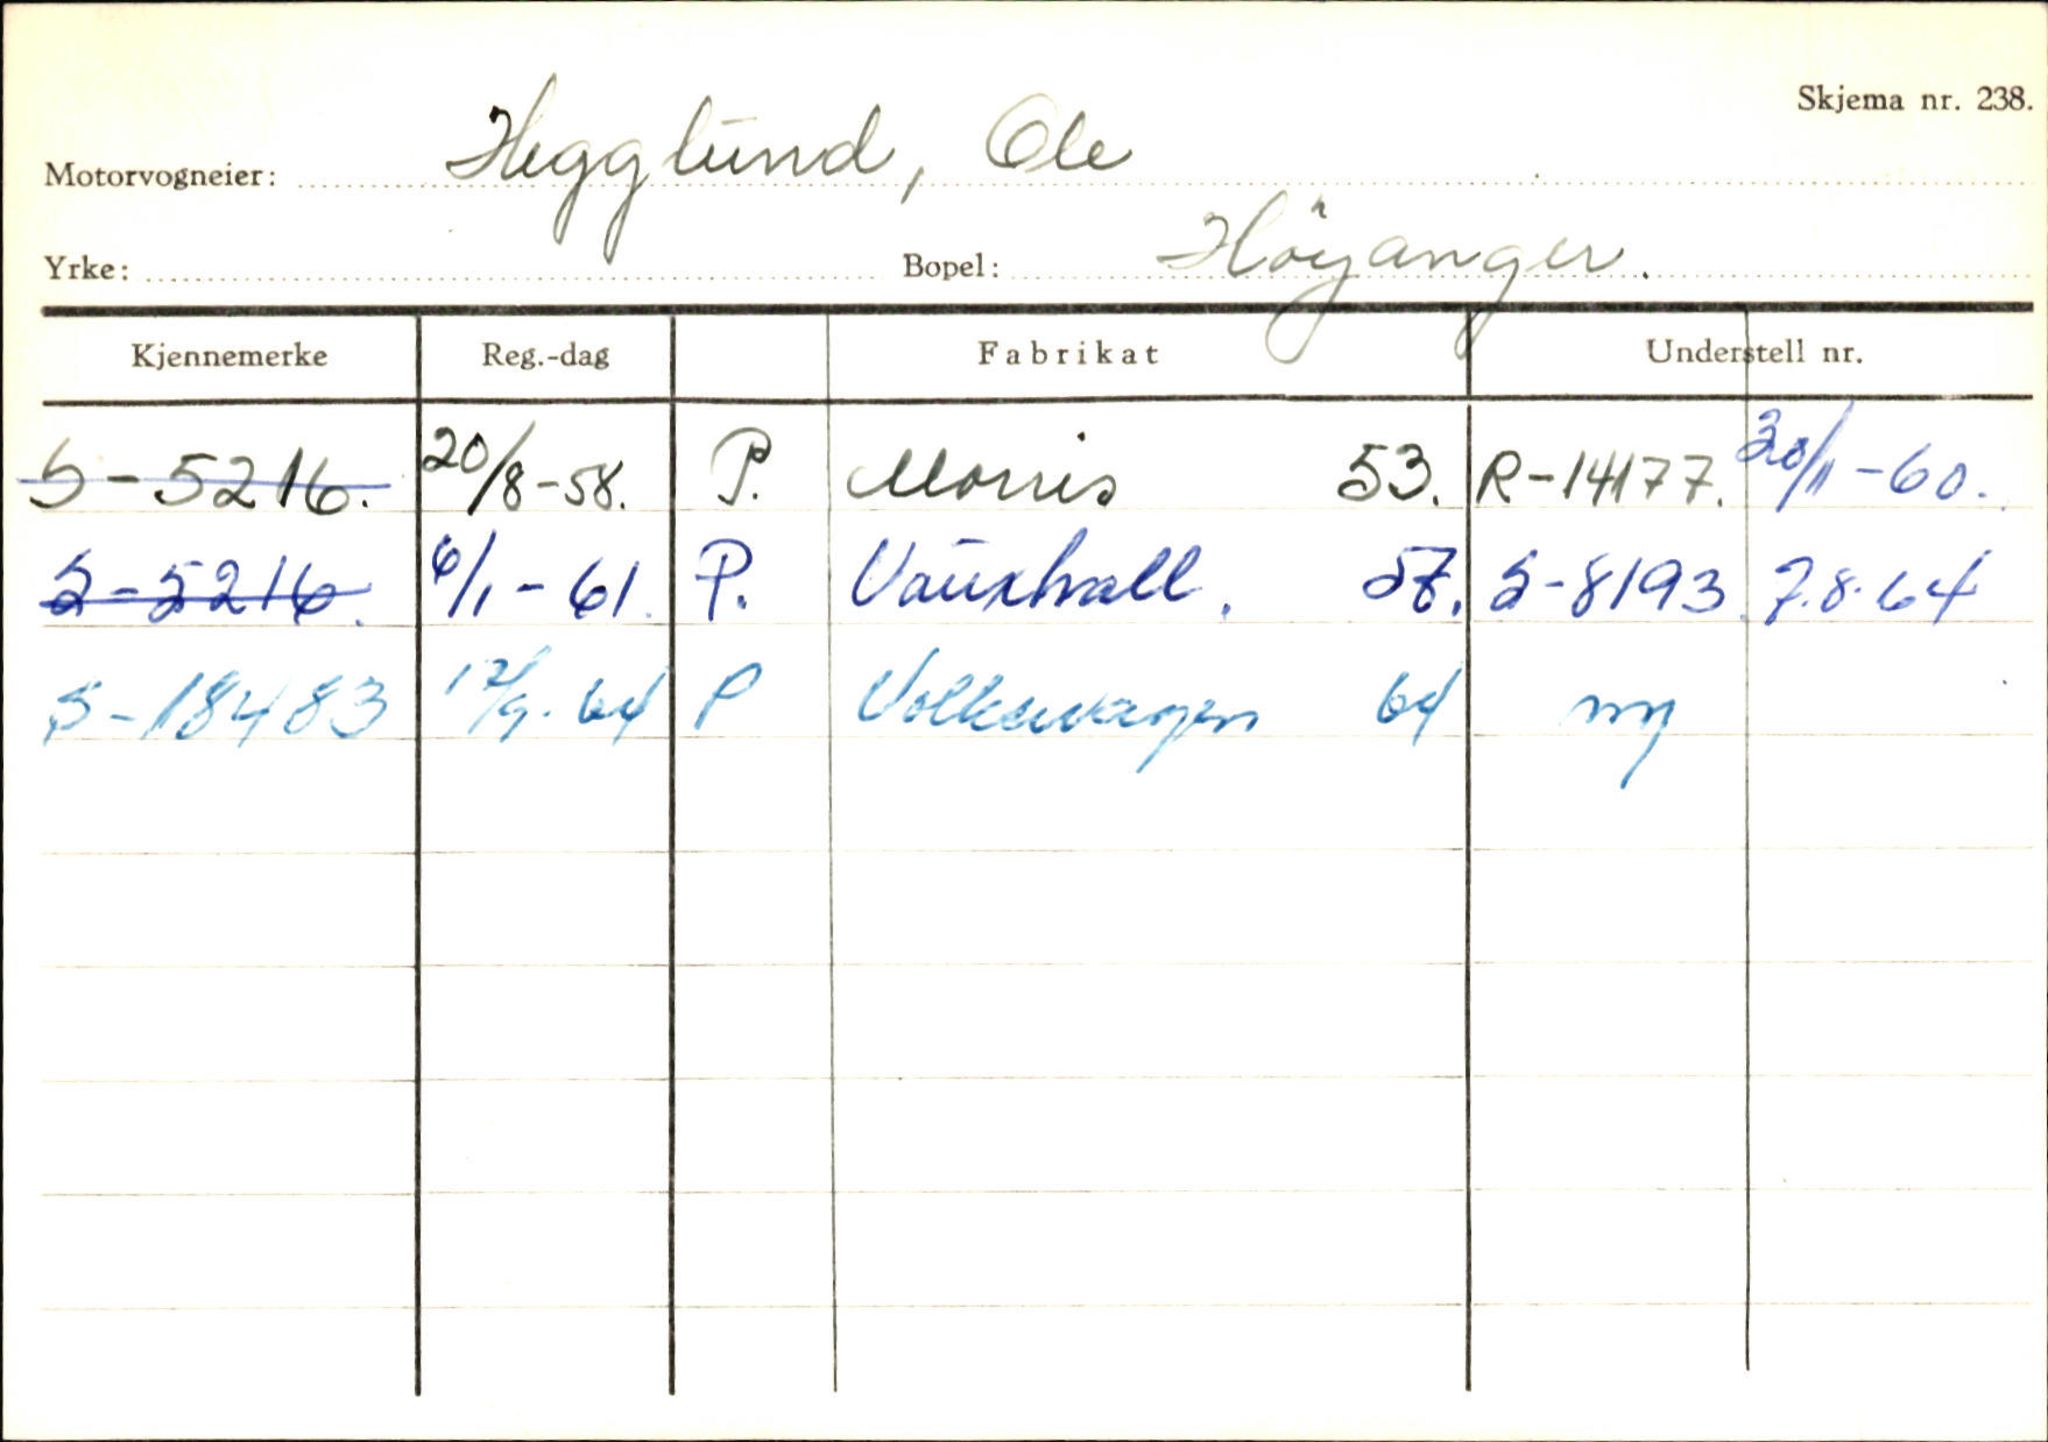 Skjema nr. 238.
Motorvogneier: Hegglund, Ole
Yrke: Bopel: Höyanger.
Kjennemerke Reg.-dag Fabrikat Understell nr.
S-5216. 20/8-58. P. Morris 53. R-14177. 30/11-60.
S-5216. 6/1-61. P. Vauxhall. 57. S-8193. 7.8.64
S-18483 17/9.64 P Volkswagen 64 ny